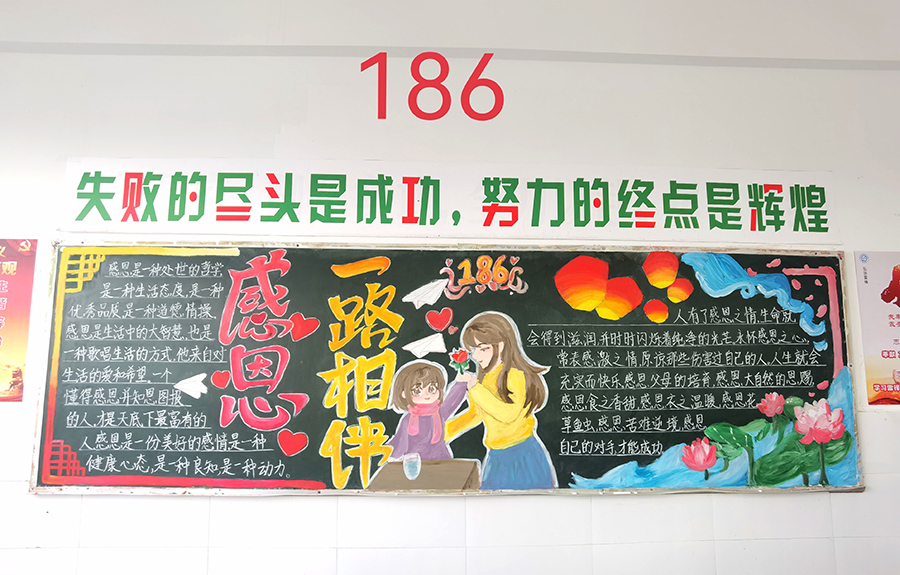 186
失败的尽头是成功，努力的终点是辉煌
感恩是一种处世的哲学
是一种生活态度，是一种
优秀品质是一种道德情操
感恩是生活中的大智慧，也是
一种歌唱生活的方式，他来自对
生活的爱和希望。一个
懂得感恩，并知恩图报
的人，才是天底下最富有的
人感恩是一份美好的感情是一种
健康心态，是一种良知是一种动力。
感恩
一路相伴
186
人有了感恩之情，生命就
会得到滋润，并时时闪烁着纯净的光芒，永怀感恩之心，
常表感激之情，原谅那些伤害过自己的人，人生就会
充实而快乐，感恩父母的培育，感恩大自然的恩赐
感恩食之香甜，感恩衣之温暖，感恩花
草鱼虫，感恩苦难逆境，感恩
自己的对手，才能成功
观
学习雷锋